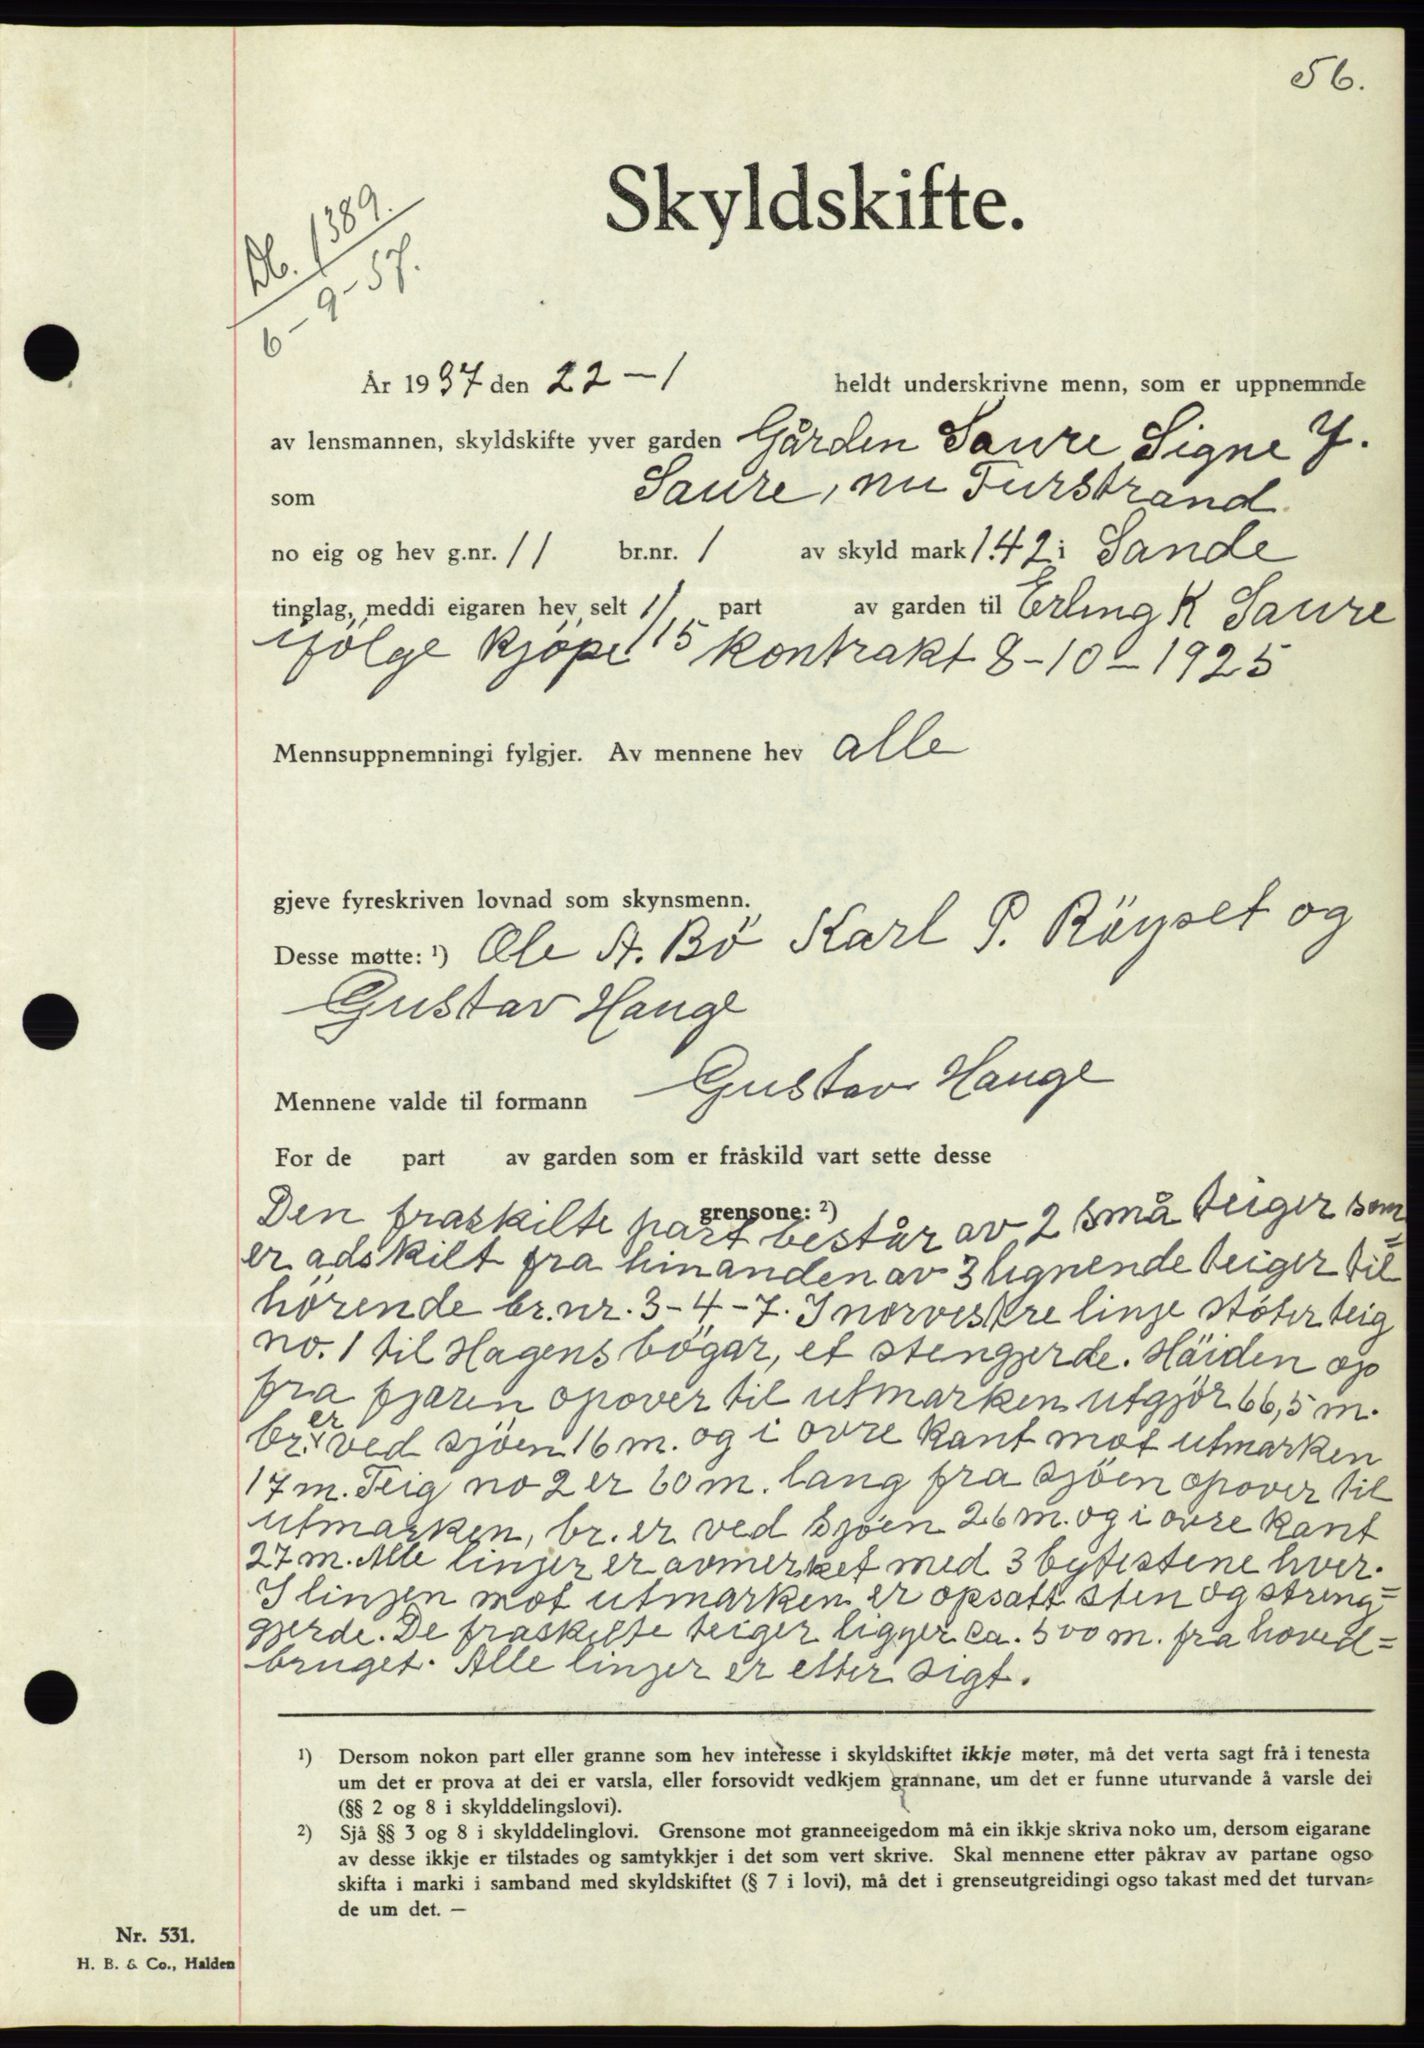 56.
Skyldskifte.
Db. 1389.
6-9-37.
År 1937 den 22-1 heldt underskrivne menn, som er uppnemnde
av lensmannen, skyldskifte yver garden Gården Saure Signe J.
som Saure, nu Furstrand
no eig og hev g.nr. 11 br.nr. 1 av skyld mark 1.42 i Sande
tinglag, meddi eigaren hev selt 1/15 part av garden til Erling K Saure
ifölge kjöpe kontrakt 8-10-1925
Mennsuppnemningi fylgjer. Av mennene hev alle
gjeve fyreskriven lovnad som skynsmenn.
Desse møtte: ¹) Ole A. Bö Karl P. Röyset og
Gustav Hauge
Mennene valde til formann Gustav Hauge
For de part av garden som er fråskild vart sette desse
grensone: ²)
Den fraskilte part består av 2 små teiger som
er adskilt fra hinanden av 3 lignende teiger til
hörende br.nr. 3-4-7. I norvestre linje stöter teig
no. 1 til Hagens bögar, et stengjerde. Höiden op
fra fjæren opover til utmarken utgjör 66,5 m.
br. er ved sjöen 16 m. og i övre kant mot utmarken
17 m. Teig no 2 er 60 m. lang fra sjöen opover til
utmarken, br. er ved sjöen 26 m. og i övre kant
27 m. Alle linjer er avmerket med 3 bytestene hver.
I linjen mot utmarken er opsatt sten og streng=
gjerde. De fraskilte teiger ligger ca. 500 m. fra hoved=
bruget. Alle linjer er etter sigt.
¹) Dersom nokon part eller granne som hev interesse i skyldskiftet ikkje møter, må det verta sagt frå i tenesta
um det er prova at dei er varsla, eller forsovidt vedkjem grannane, um det er funne uturvande å varsle dei
(§§ 2 og 8 i skylddelingslovi).
²) Sjå §§ 3 og 8 i skylddelinglovi. Grensone mot granneeigedom må ein ikkje skriva noko um, dersom eigarane
av desse ikkje er tilstades og samtykkjer i det som vert skrive. Skal mennene etter påkrav av partane ogso
skifta i marki i samband med skyldskiftet (§ 7 i lovi), må det i grenseutgreidingi ogso takast med det turvan=
de um det. —
Nr. 531.
H. B. & Co., Halden